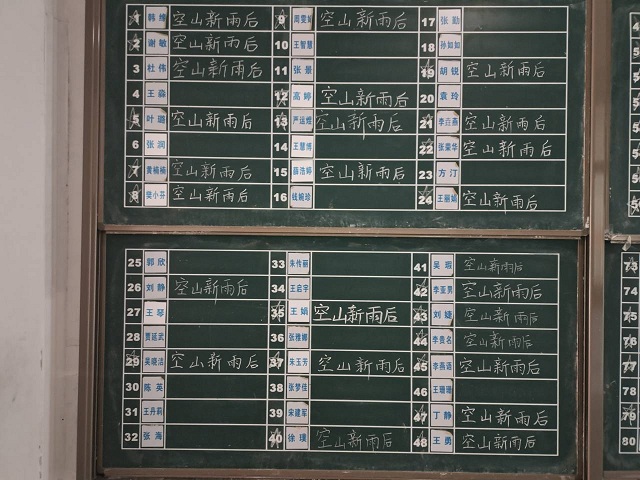 1 韩 绮 空山新雨后
2 谢 敏 空山新雨后
3 杜 伟 空山新雨后
4 王 淼
5 叶 璐 空山新雨后
6 张 润
7 黄楠楠 空山新雨后
8 樊小芬 空山新雨后
9 周雯 空山新雨后
10 王智慧
11 张 景
12 高 婷 空山新雨后
13 严运煜 空山新雨后
14 王慧博
15 薛浩婷 空山新雨后
16 钱婉珍
17 张 勤
18 孙如如
19 胡 锐 空山新雨后
20 袁 玲
21 李垚燕 空山新雨后
22 张荣华 空山新雨后
23 方 汀
24 王丽娟 空山新雨后
25 郭 欣
26 刘 静 空山新雨后
27 王 琴
28 贾延武
29 吴晓洁 空山新雨后
30 陈 英
31 王丹莉
32 张 海
33 朱传丽
34 王启宇
35 王 娟 空山新雨后
36 张雅娜
37 朱玉芳 空山新雨后
38 张梦佳
39 宋建军
40 徐 璞 空山新雨后
41 吴 瑕 空山新雨后
42 李亚男 空山新雨后
43 刘 婕 空山新雨后
44 李贵名 空山新雨后
45 李燕语 空山新雨后
46 王珊珊
47 丁 静 空山新雨后
48 王 勇 空山新雨后
73
74
75
76
77
78
79
80